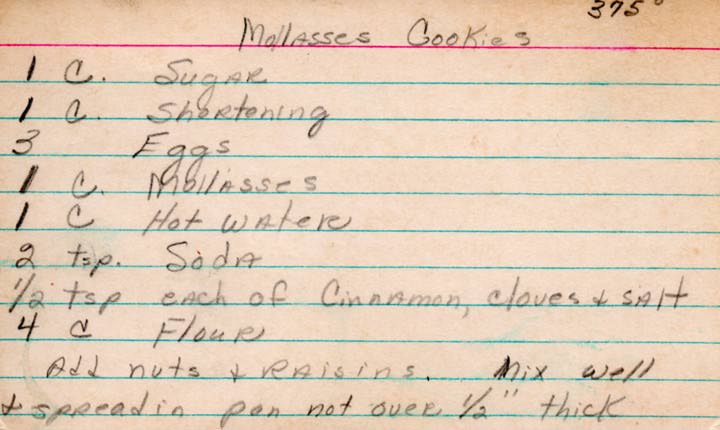 375°
Mollasses Cookies
1 C. Sugar
1 C. Shortening
3 Eggs
1 C. Mollasses
1 C Hot water
2 tsp. Soda
1/2 tsp each of Cinnamon, cloves & salt
4 C Flour
Add nuts & Raisins. Mix well
& spread in pan not over 1/2" thick